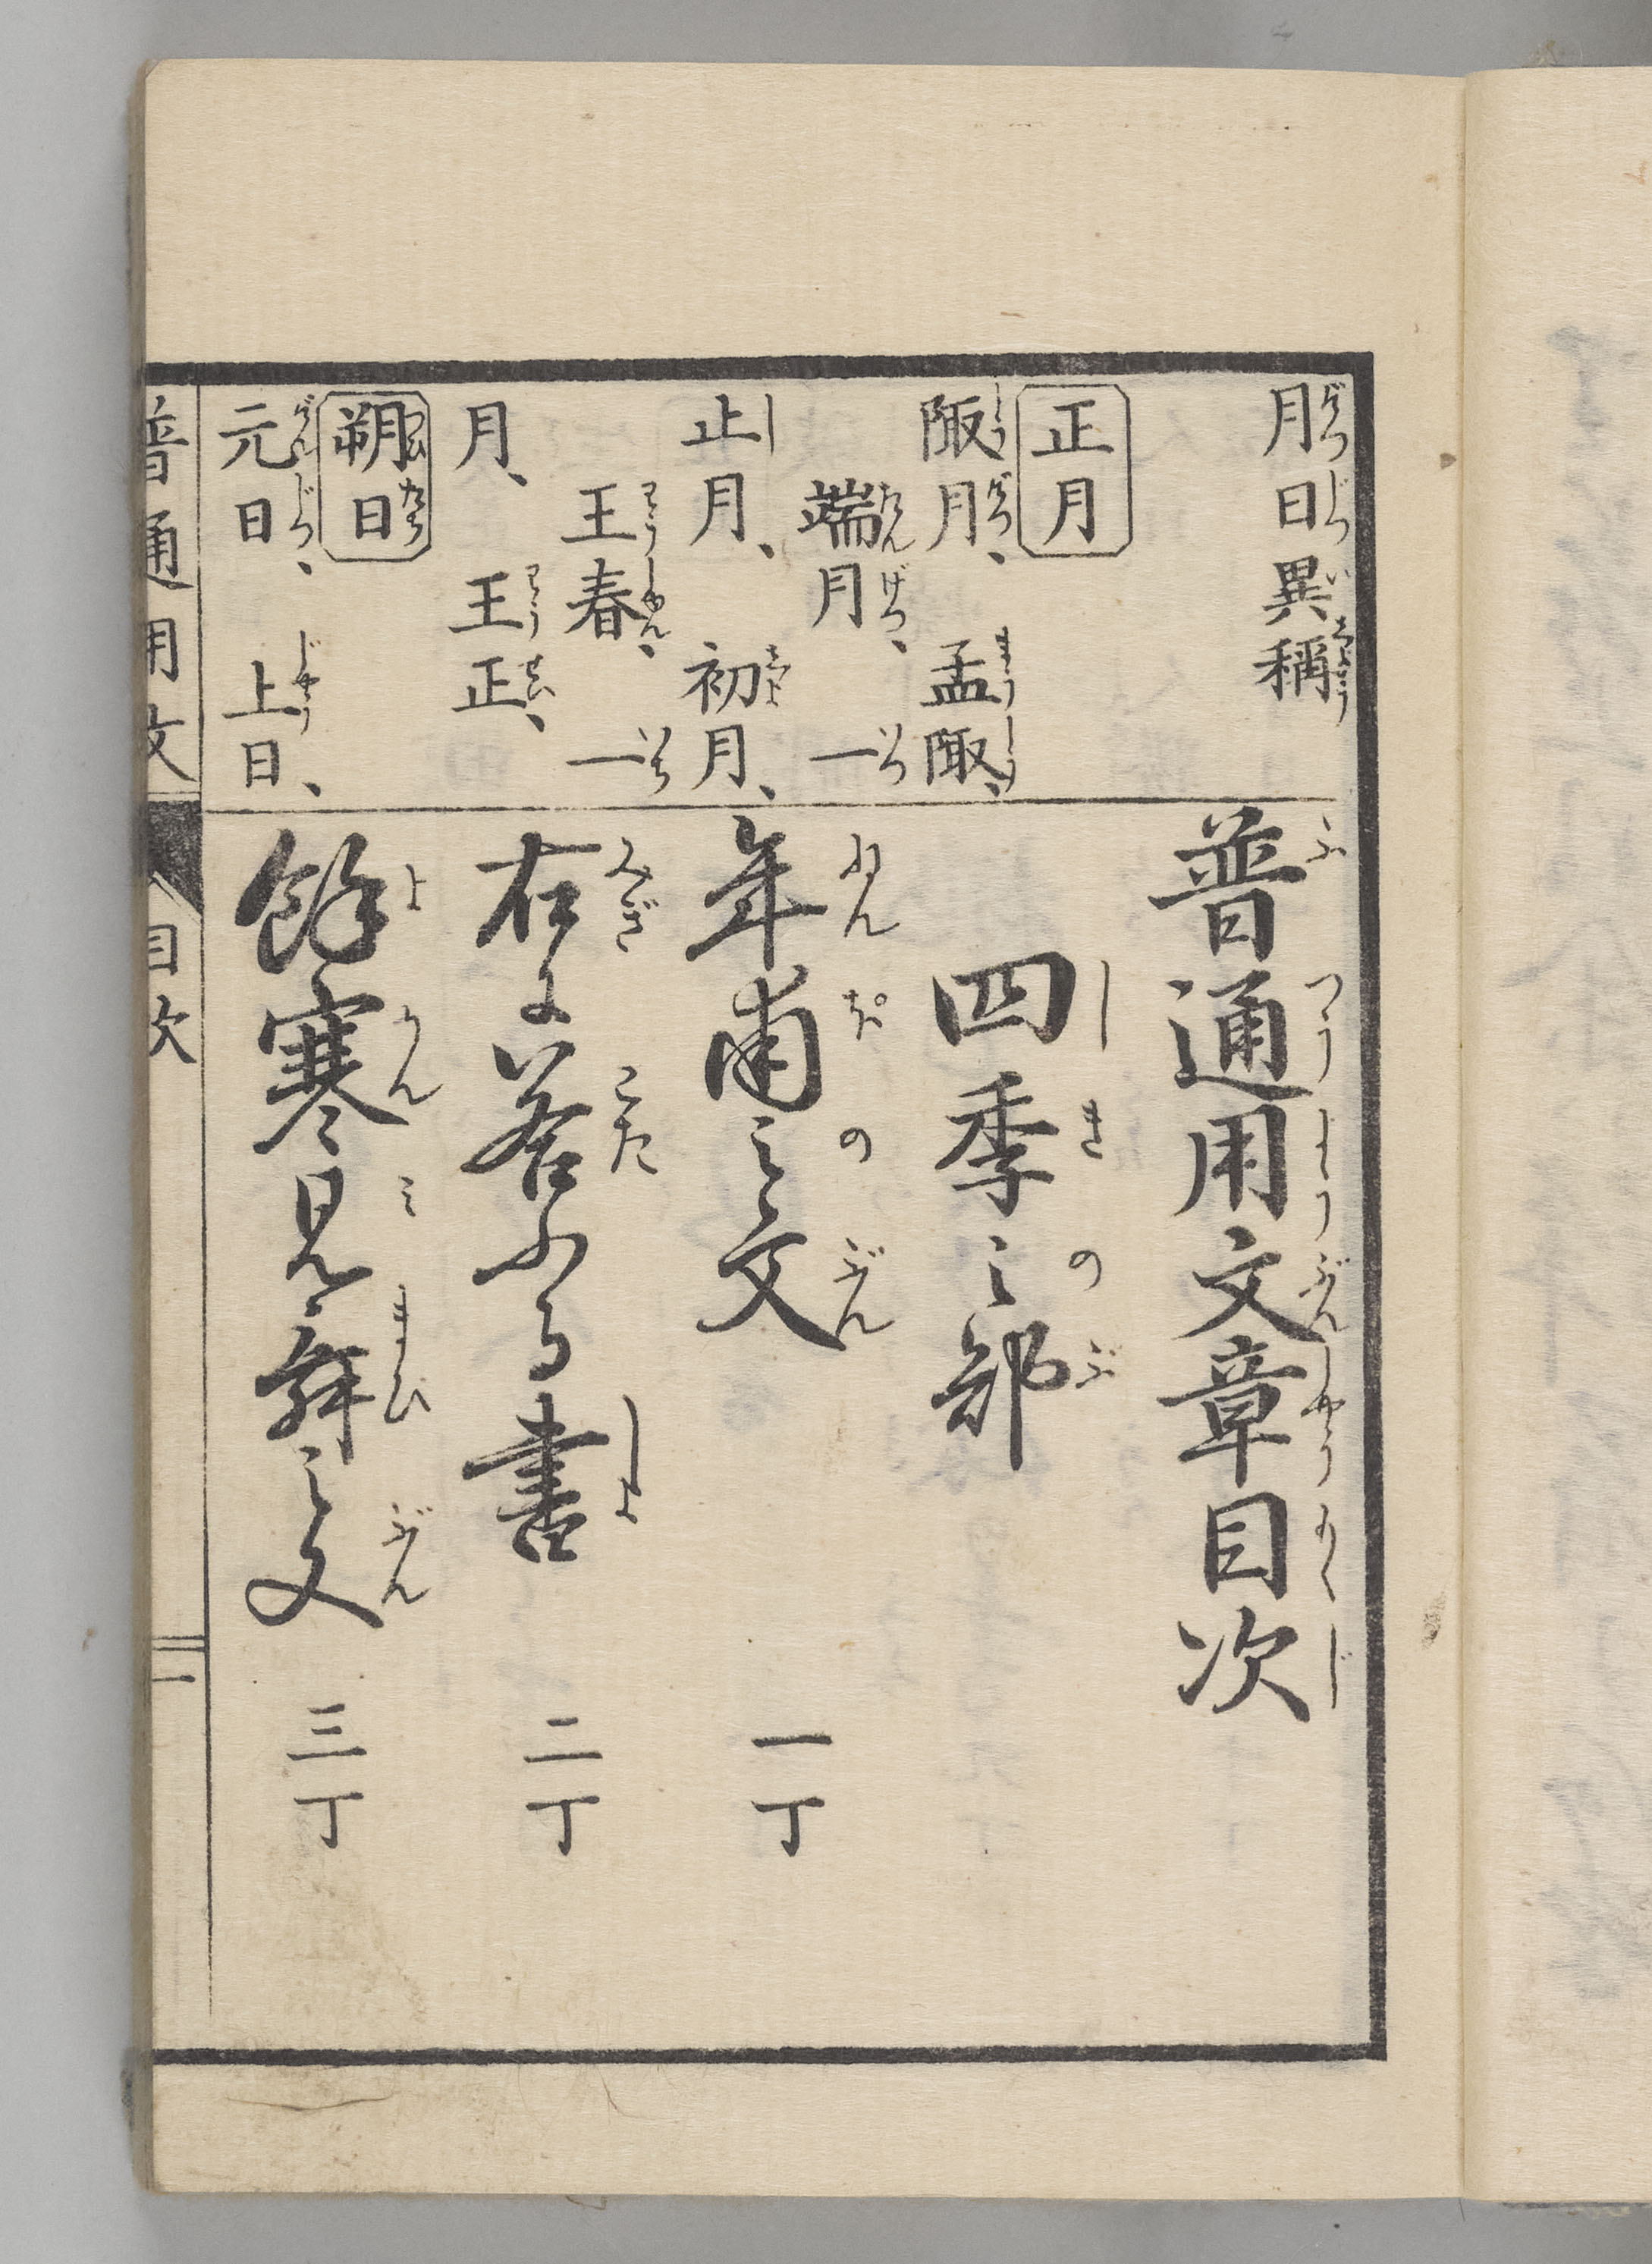 月日異稱
正月
陬月、孟陬、
端月、一
止月、初月、
王春、一
月、王正、
朔日
元日、上日、
普通用文章目次
四季之部
年甫之文 一丁
右に答ふる書 二丁
餘寒見舞之文 三丁
普通用文 目次 一